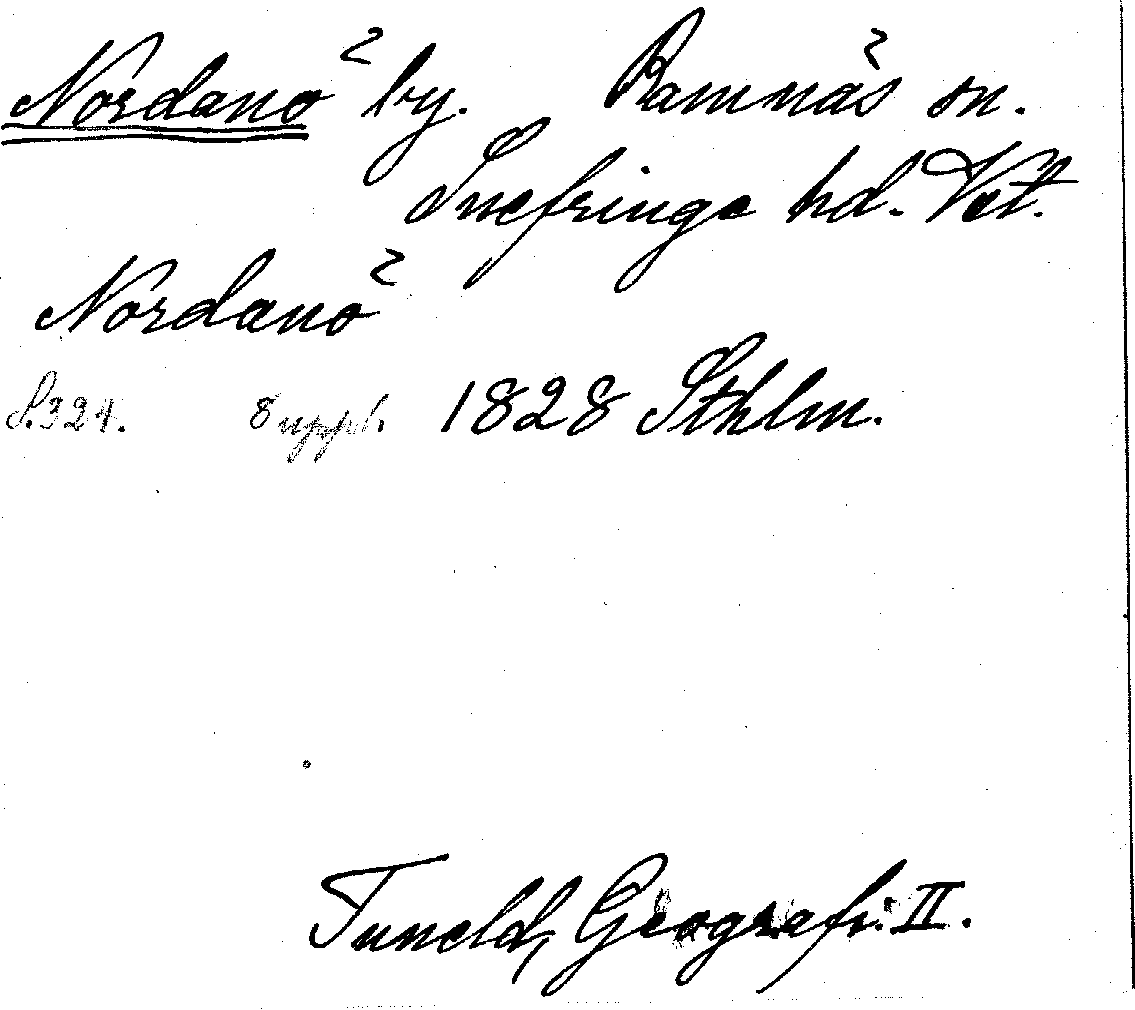 Nordanö by. Ramnäs sn.
Snefringe hd. Vstm.
Nordanö
S. 324. 8 uppl. 1828 Sthlm.
Tuneld, Geografi. II.